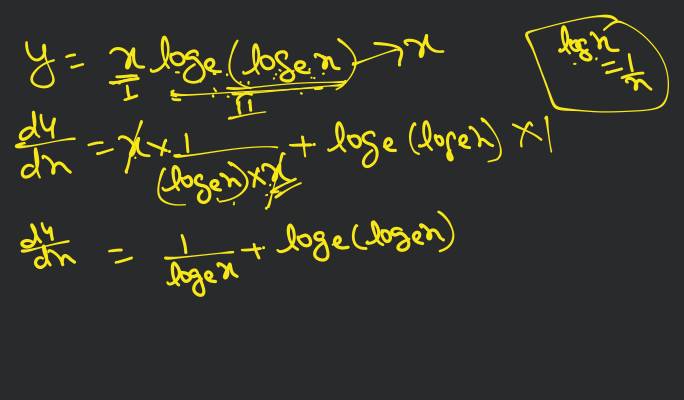 y = x logₑ(logₑx) → x
I II
logx
= 1/x
dy/dx = x × 1/((logₑx) × x) + logₑ(logₑx) × 1
dy/dx = 1/logₑx + logₑ(logₑx)